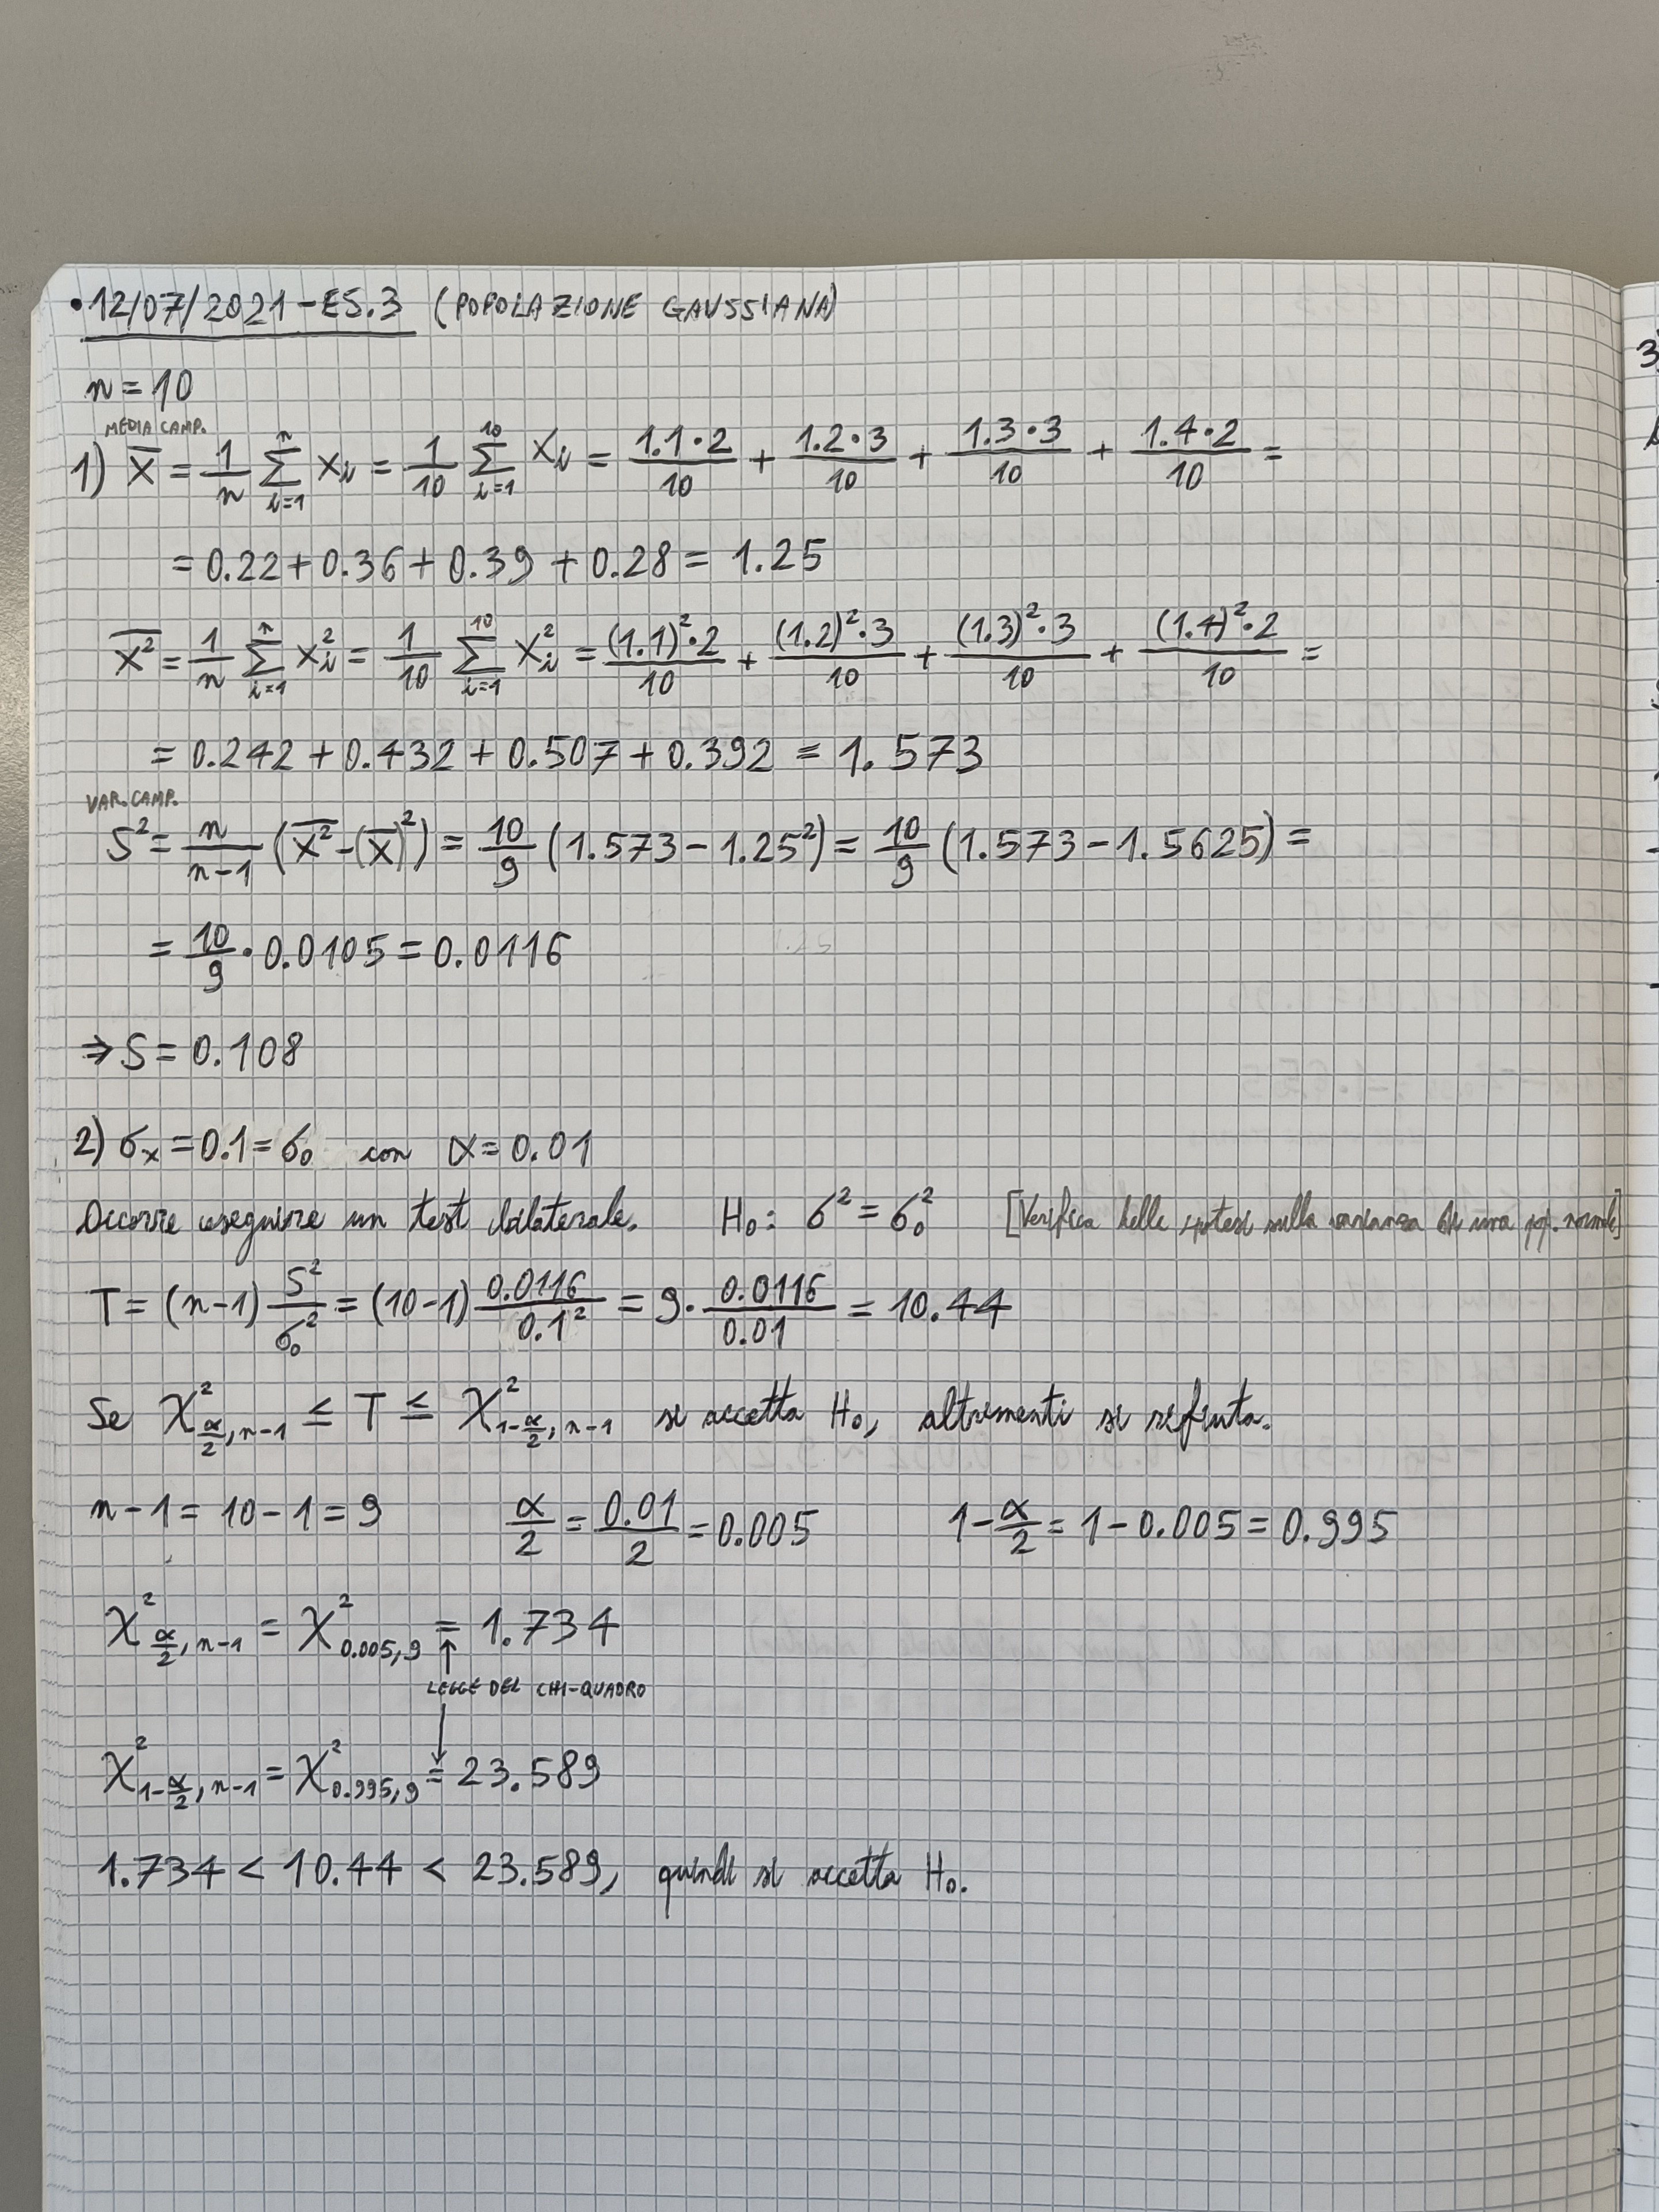 •12/07/2021-ES.3 (POPOLAZIONE GAUSSIANA)
n=10
MEDIA CAMP.
1) X̅ = 1/n ∑_{i=1}^{n} x_i = 1/10 ∑_{i=1}^{10} x_i = 1.1•2/10 + 1.2•3/10 + 1.3•3/10 + 1.4•2/10 =
= 0.22+0.36+0.39+0.28 = 1.25
\overline{X²} = 1/n ∑_{i=1}^{n} x_i² = 1/10 ∑_{i=1}^{10} x_i² = (1.1)²•2/10 + (1.2)²•3/10 + (1.3)²•3/10 + (1.4)²•2/10 =
= 0.242+0.432+0.507+0.392 = 1.573
VAR. CAMP.
S² = n/(n-1) (\overline{X²}-(X̅)²) = 10/9 (1.573-1.25²) = 10/9 (1.573-1.5625) =
= 10/9 • 0.0105 = 0.0116
⇒ S = 0.108
2) σ_x = 0.1 = σ_0 con α = 0.01
Occorre eseguire un test bilaterale. H_0: σ² = σ_0² [Verifica delle ipotesi sulla varianza di una pop. normale]
T = (n-1) S²/σ_0² = (10-1) 0.0116/0.1² = 9• 0.0116/0.01 = 10.44
Se χ²_{α/2, n-1} ≤ T ≤ χ²_{1-α/2, n-1} si accetta H_0, altrimenti si rifiuta.
n-1 = 10-1 = 9 α/2 = 0.01/2 = 0.005 1-α/2 = 1-0.005 = 0.995
χ²_{α/2, n-1} = χ²_{0.005, 9} = 1.734
↑
LEGGE DEL CHI-QUADRO
↓
χ²_{1-α/2, n-1} = χ²_{0.995, 9} = 23.589
1.734 < 10.44 < 23.589, quindi si accetta H_0.
3)